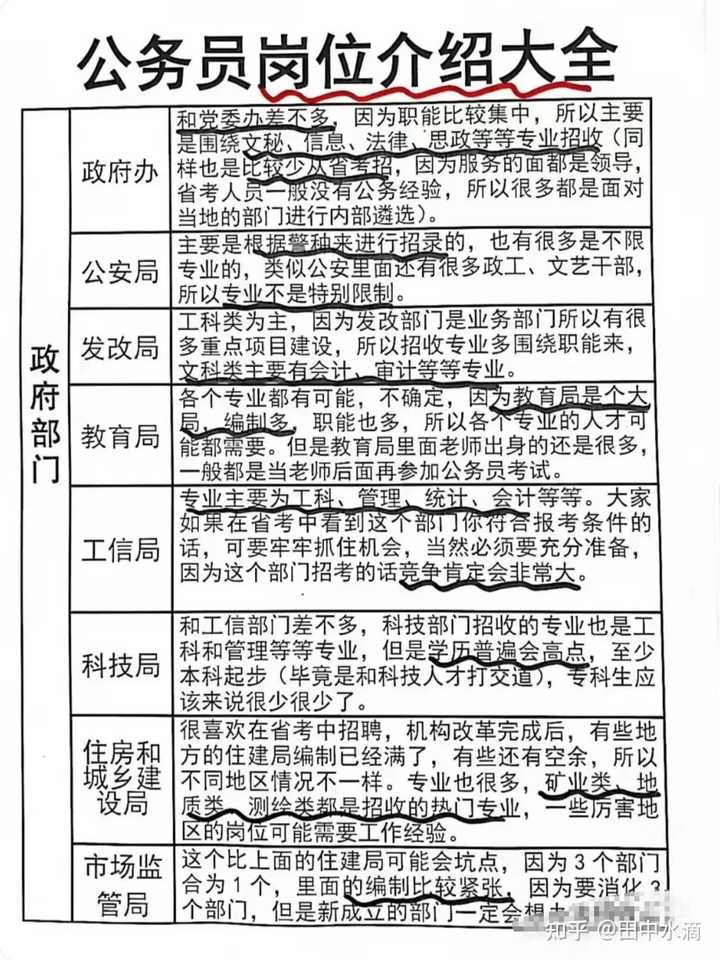 公务员岗位介绍大全
政府部门
政府办
和党委办差不多，因为职能比较集中，所以主要
是围绕文秘、信息、法律、思政等等专业招收（同
样也是比较少从省考招，因为服务的面都是领导，
省考人员一般没有公务经验，所以很多都是面对
当地的部门进行内部遴选）。
公安局
主要是根据警种来进行招录的，也有很多是不限
专业的，类似公安里面还有很多政工、文艺干部，
所以专业不是特别限制。
发改局
工科类为主，因为发改部门是业务部门所以有很
多重点项目建设，所以招收专业多围绕职能来，
文科类主要有会计、审计等等专业。
教育局
各个专业都有可能，不确定，因为教育局是个大
局，编制多，职能也多，所以各个专业的人才可
能都需要。但是教育局里面老师出身的还是很多，
一般都是当老师后面再参加公务员考试。
工信局
专业主要为工科、管理、统计、会计等等。大家
如果在省考中看到这个部门你符合报考条件的
话，可要牢牢抓住机会，当然必须要充分准备，
因为这个部门招考的话竞争肯定会非常大。
科技局
和工信部门差不多，科技部门招收的专业也是工
科和管理等等专业，但是学历普遍会高点，至少
本科起步（毕竟是和科技人才打交道），专科生应
该来说很少很少了。
住房和
城乡建
设局
很喜欢在省考中招聘，机构改革完成后，有些地
方的住建局编制已经满了，有些还有空余，所以
不同地区情况不一样。专业也很多，矿业类、地
质类、测绘类都是招收的热门专业，一些厉害地
区的岗位可能需要工作经验。
市场监
管局
这个比上面的住建局可能会坑点，因为3个部门
合为1个，里面的编制比较紧张，因为要消化3
个部门，但是新成立的部门一定会想
知乎 @田中水滴